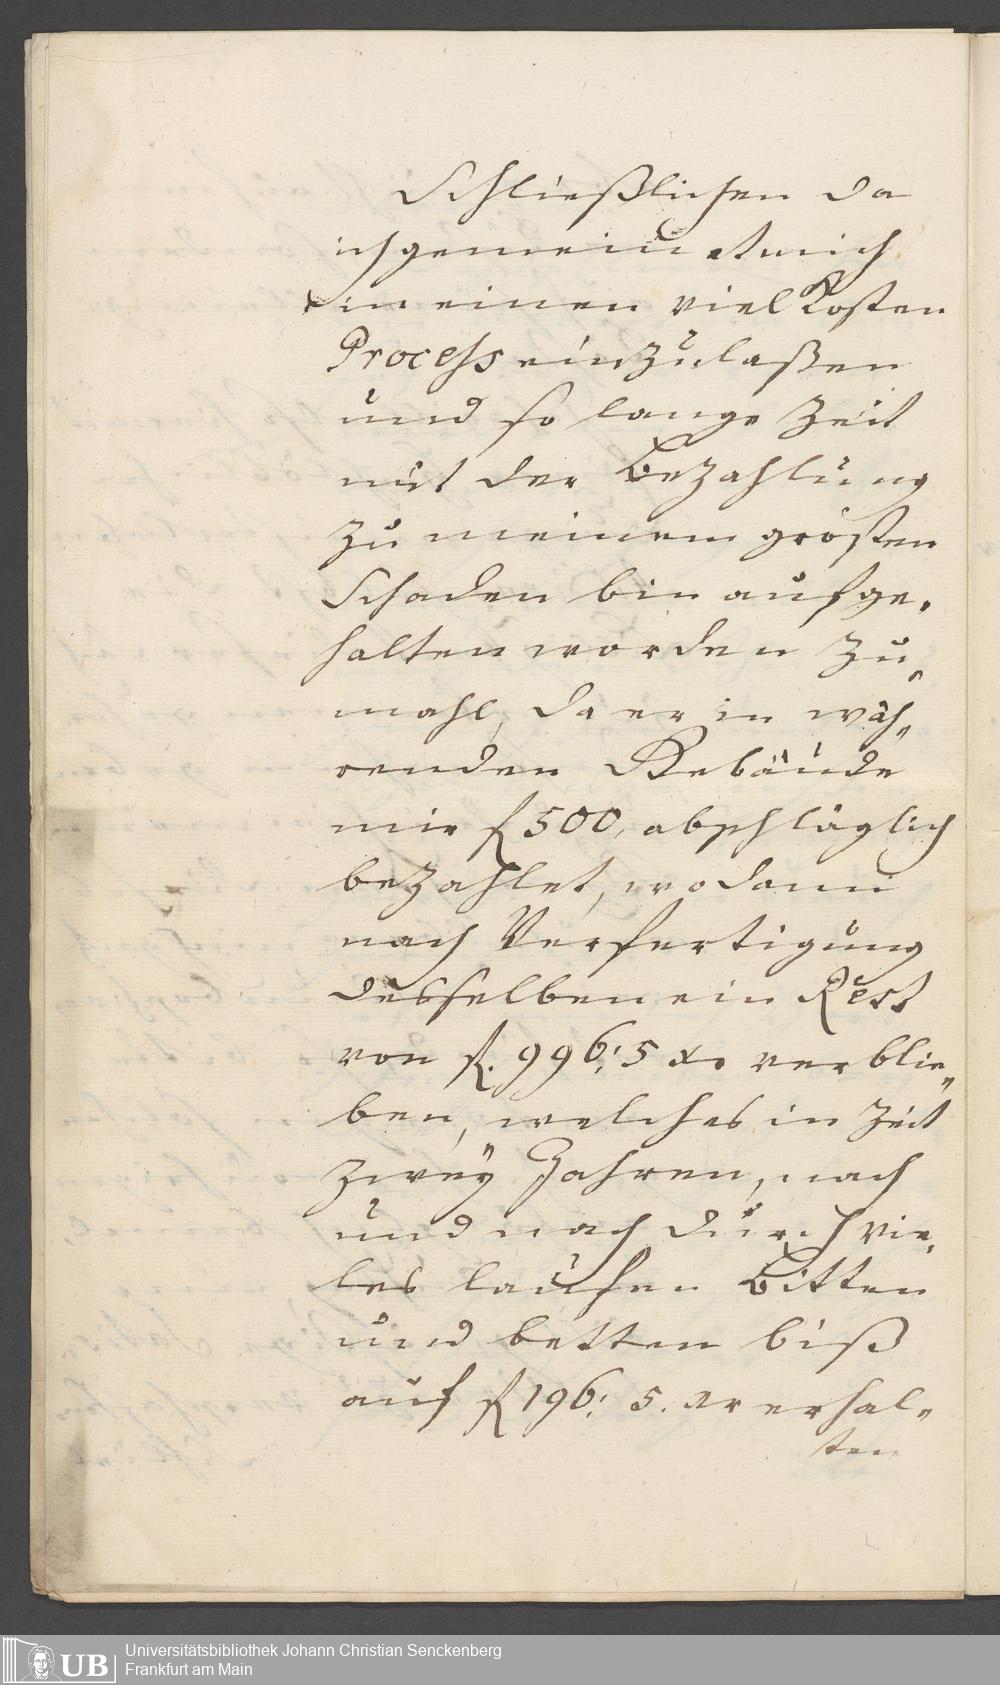 Schließlichen da
ich gemeind mich
in einen viel Kosten
Process einzulaßen
und so lange Zeit
mit der Bezahlung
zu meinem grösten
Schaden bin aufge„
halten worden zu„
mahl, da er in wäh„
renden Gebäude
mir f 500, abschläglich
bezahlet, wodann
nach Verfertigung
desselben ein Rest
von f. 996: 5 xr verblie„
ben, welches in Zeit
zweÿ Jahren, nach
und nach durch vie„
les laufen Bitten
und betten biß
auf f 196: 5. xr erhal„
ten
Universitätsbibliothek Johann Christian Senckenberg
Frankfurt am Main
UB